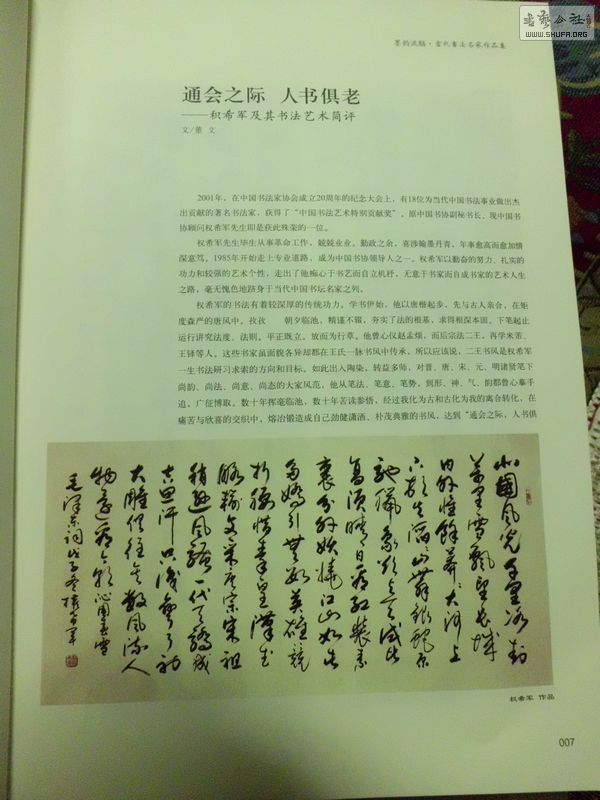 书艺公社
WWW.SHUFA.ORG
墨韵流觞·当代书法名家作品集
通会之际 人书俱老
——积希军及其书法艺术简评
文/董 文
2001年，在中国书法家协会成立20周年的纪念大会上，有18位为当代中国书法事业做出杰
出贡献的著名书法家，获得了“中国书法艺术特别贡献奖”。原中国书协副秘书长、现中国书
协顾问权希军先生即是获此殊荣的一位。
权希军先生毕生从事革命工作，兢兢业业。勤政之余，喜涉翰墨丹青，年事愈高而愈加情
深意笃。1985年开始走上专业道路，成为中国书协领导人之一。权希军以勤奋的努力、扎实的
功力和较强的艺术个性，走出了他痴心于书艺而自立机杼，无意于书家而自成书家的艺术人生
之路，毫无愧色地跻身于当代中国书坛名家之列。
权希军的书法有着较深厚的传统功力。学书伊始，他以唐楷起步，先与古人亲合，在矩
度森严的唐风中，孜孜 朝夕临池，精谨不辍，夯实了法的根基，求得根深本固。下笔起止
运行讲究法度、法则，平正既立，放而为行草。他曾心仪赵孟頫，而后宗法二王，再学米芾、
王铎等人。这些书家虽面貌各异却都在王氏一脉书风中传承，所以应该说，二王书风是权希军
一生书法研习求索的方向和目标。如此出入陶染，转益多师，对晋、唐、宋、元、明诸贤笔下
尚韵、尚法、尚意、尚态的大家风范，他从笔法、笔意、笔势，到形、神、气、韵都曾心摹手
追，广征博取。数十年挥毫临池，数十年苦读参悟，经过我化为古和古化为我的离合转化，在
痛苦与欣喜的交织中，熔冶锻造成自己劲健潇洒、朴茂典雅的书风，达到“通会之际，人书俱
北国风光千里冰封
万里雪飘望长城
内外惟余莽莽大河上
下顿失滔滔山舞银蛇原
驰腊象欲与天公试比
高须晴日看红装素
裹分外妖娆江山如此
多娇引无数英雄竞
折腰惜秦皇汉武
略输文采唐宗宋祖
稍逊风骚一代天骄成
吉思汗只识弯弓射
大雕俱往矣数风流人
物还看今朝 沁园春雪
毛泽东词戊子冬权希军
权希军 作品
007